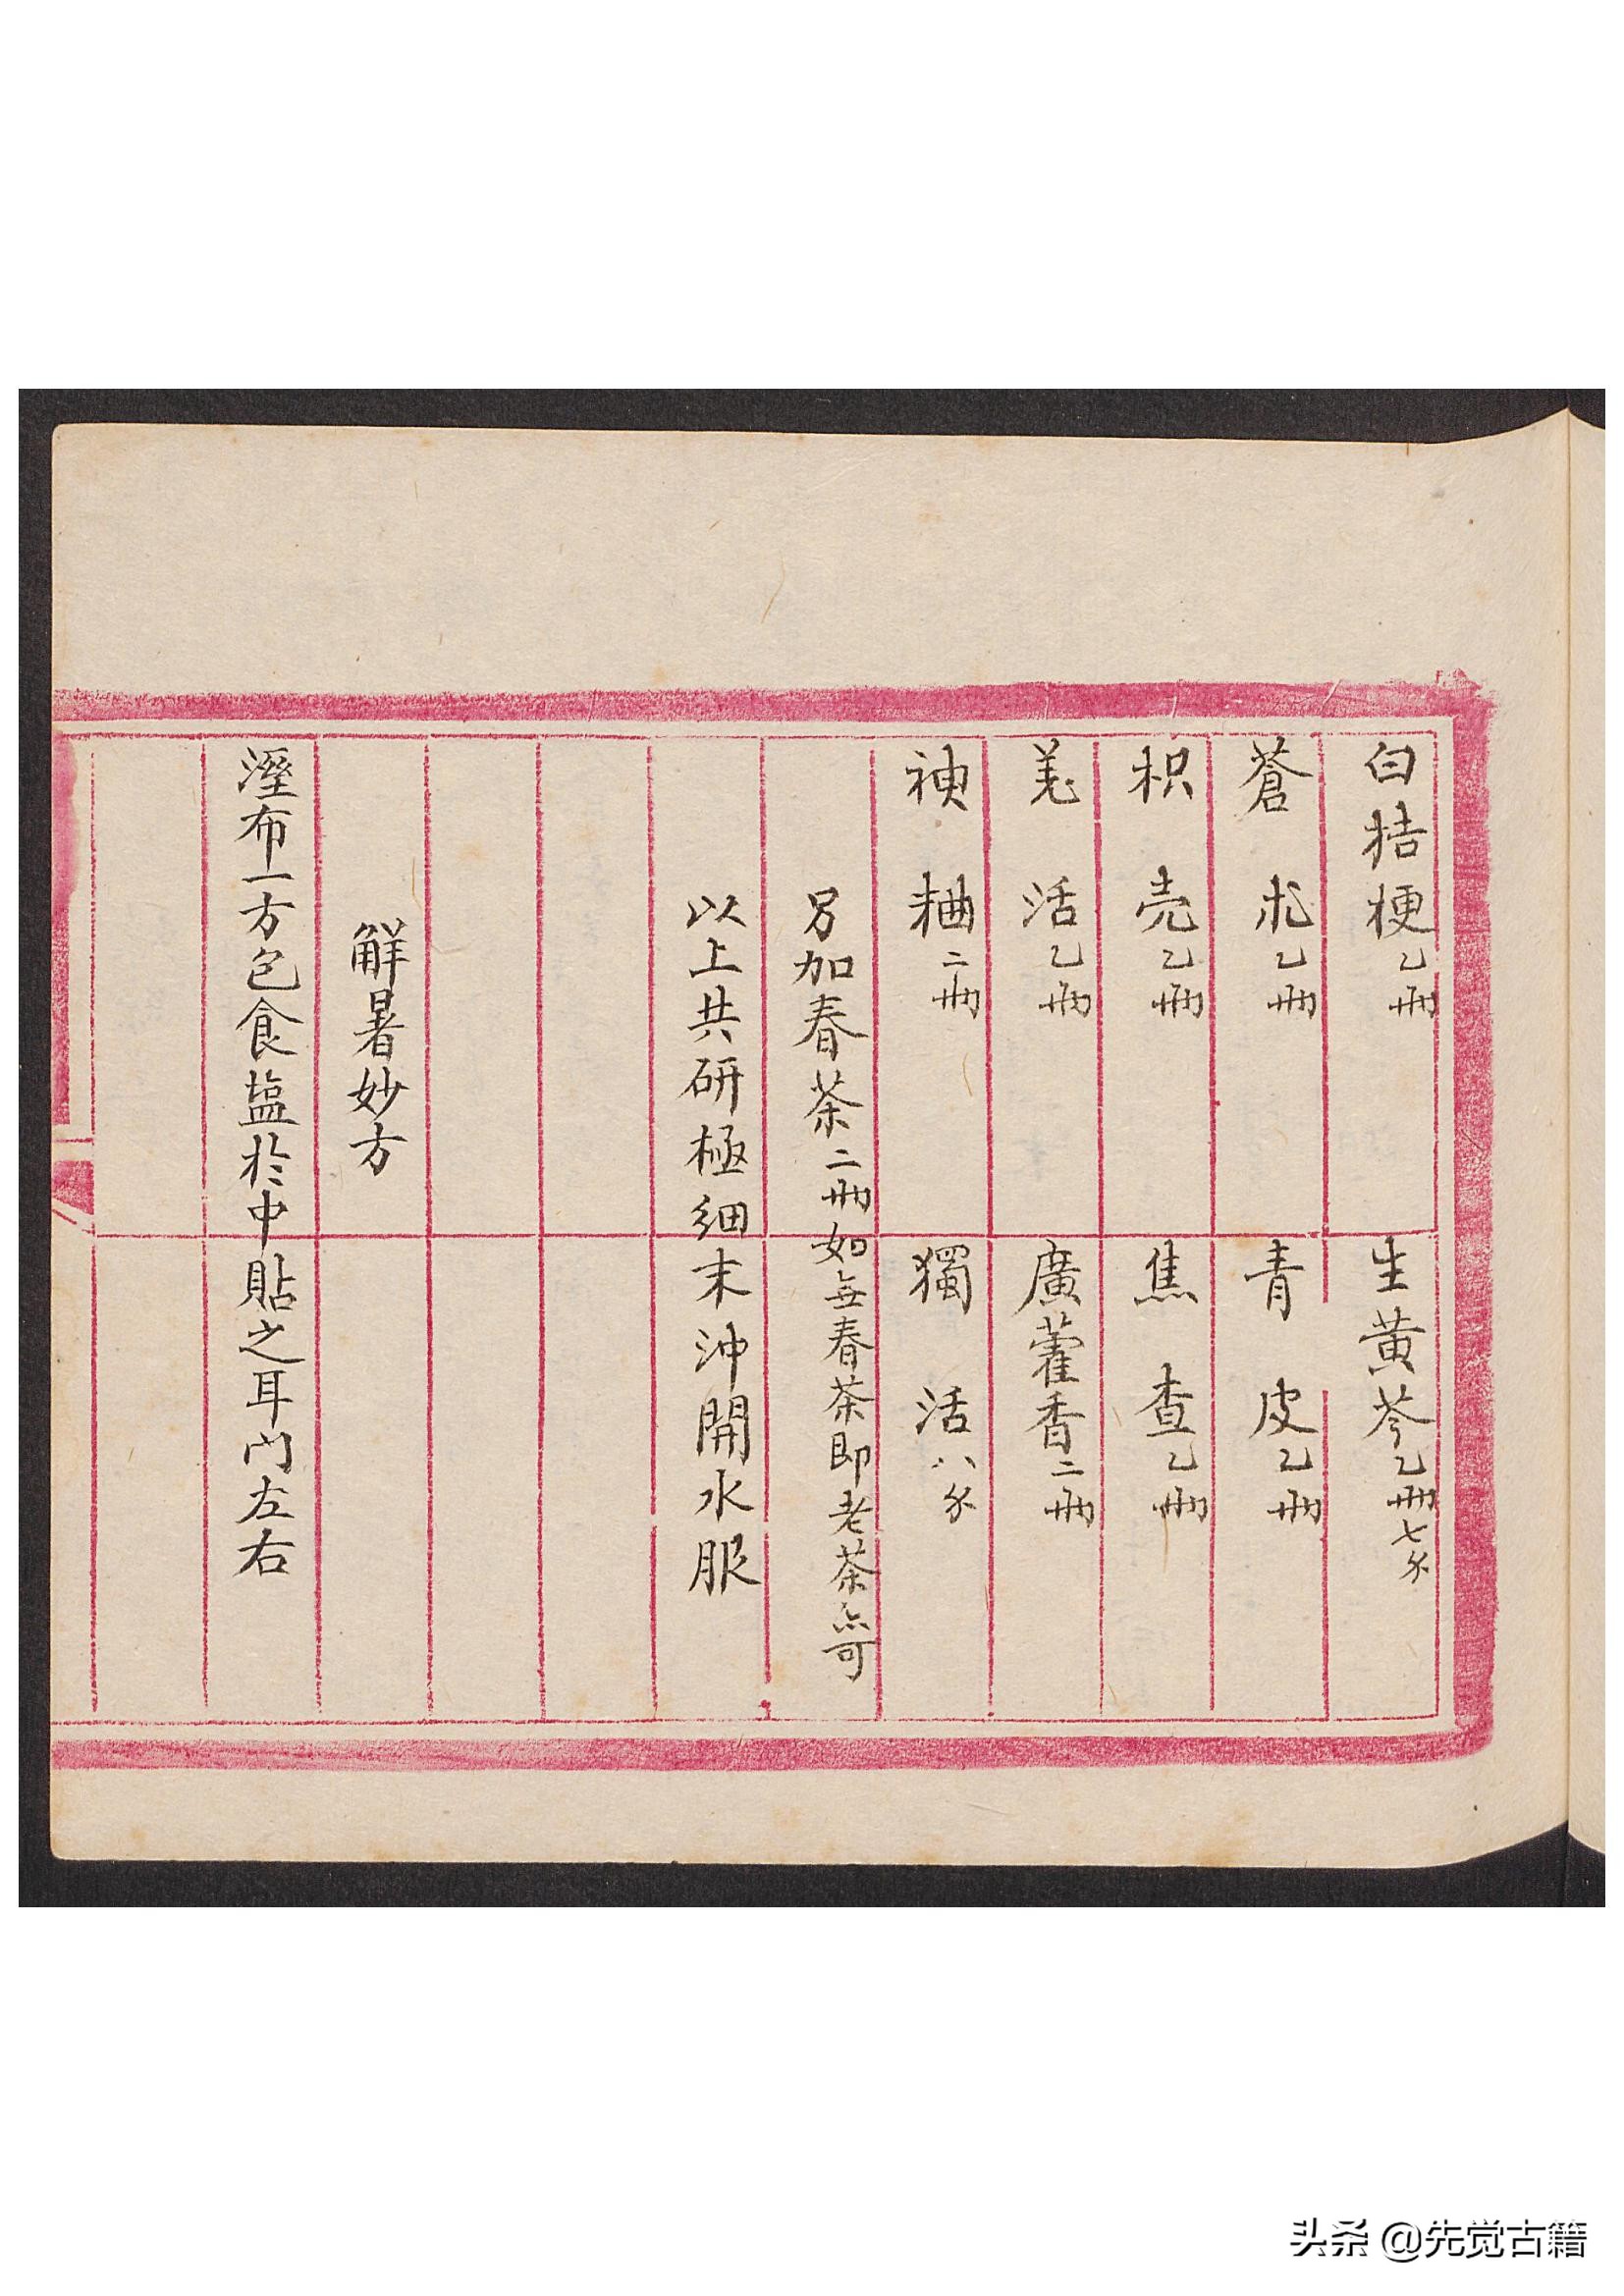 白桔梗乙両 生黄芩乙両七分
蒼朮乙両 青皮乙両
枳壳乙両 焦查乙両
羌活乙両 廣藿香二両
神麯二両 獨活八分
另加春茶二両如無春茶即老茶亦可
以上共研極細末沖開水服
解暑妙方
溼布一方包食盐於中貼之耳门左右
头条 @先觉古籍